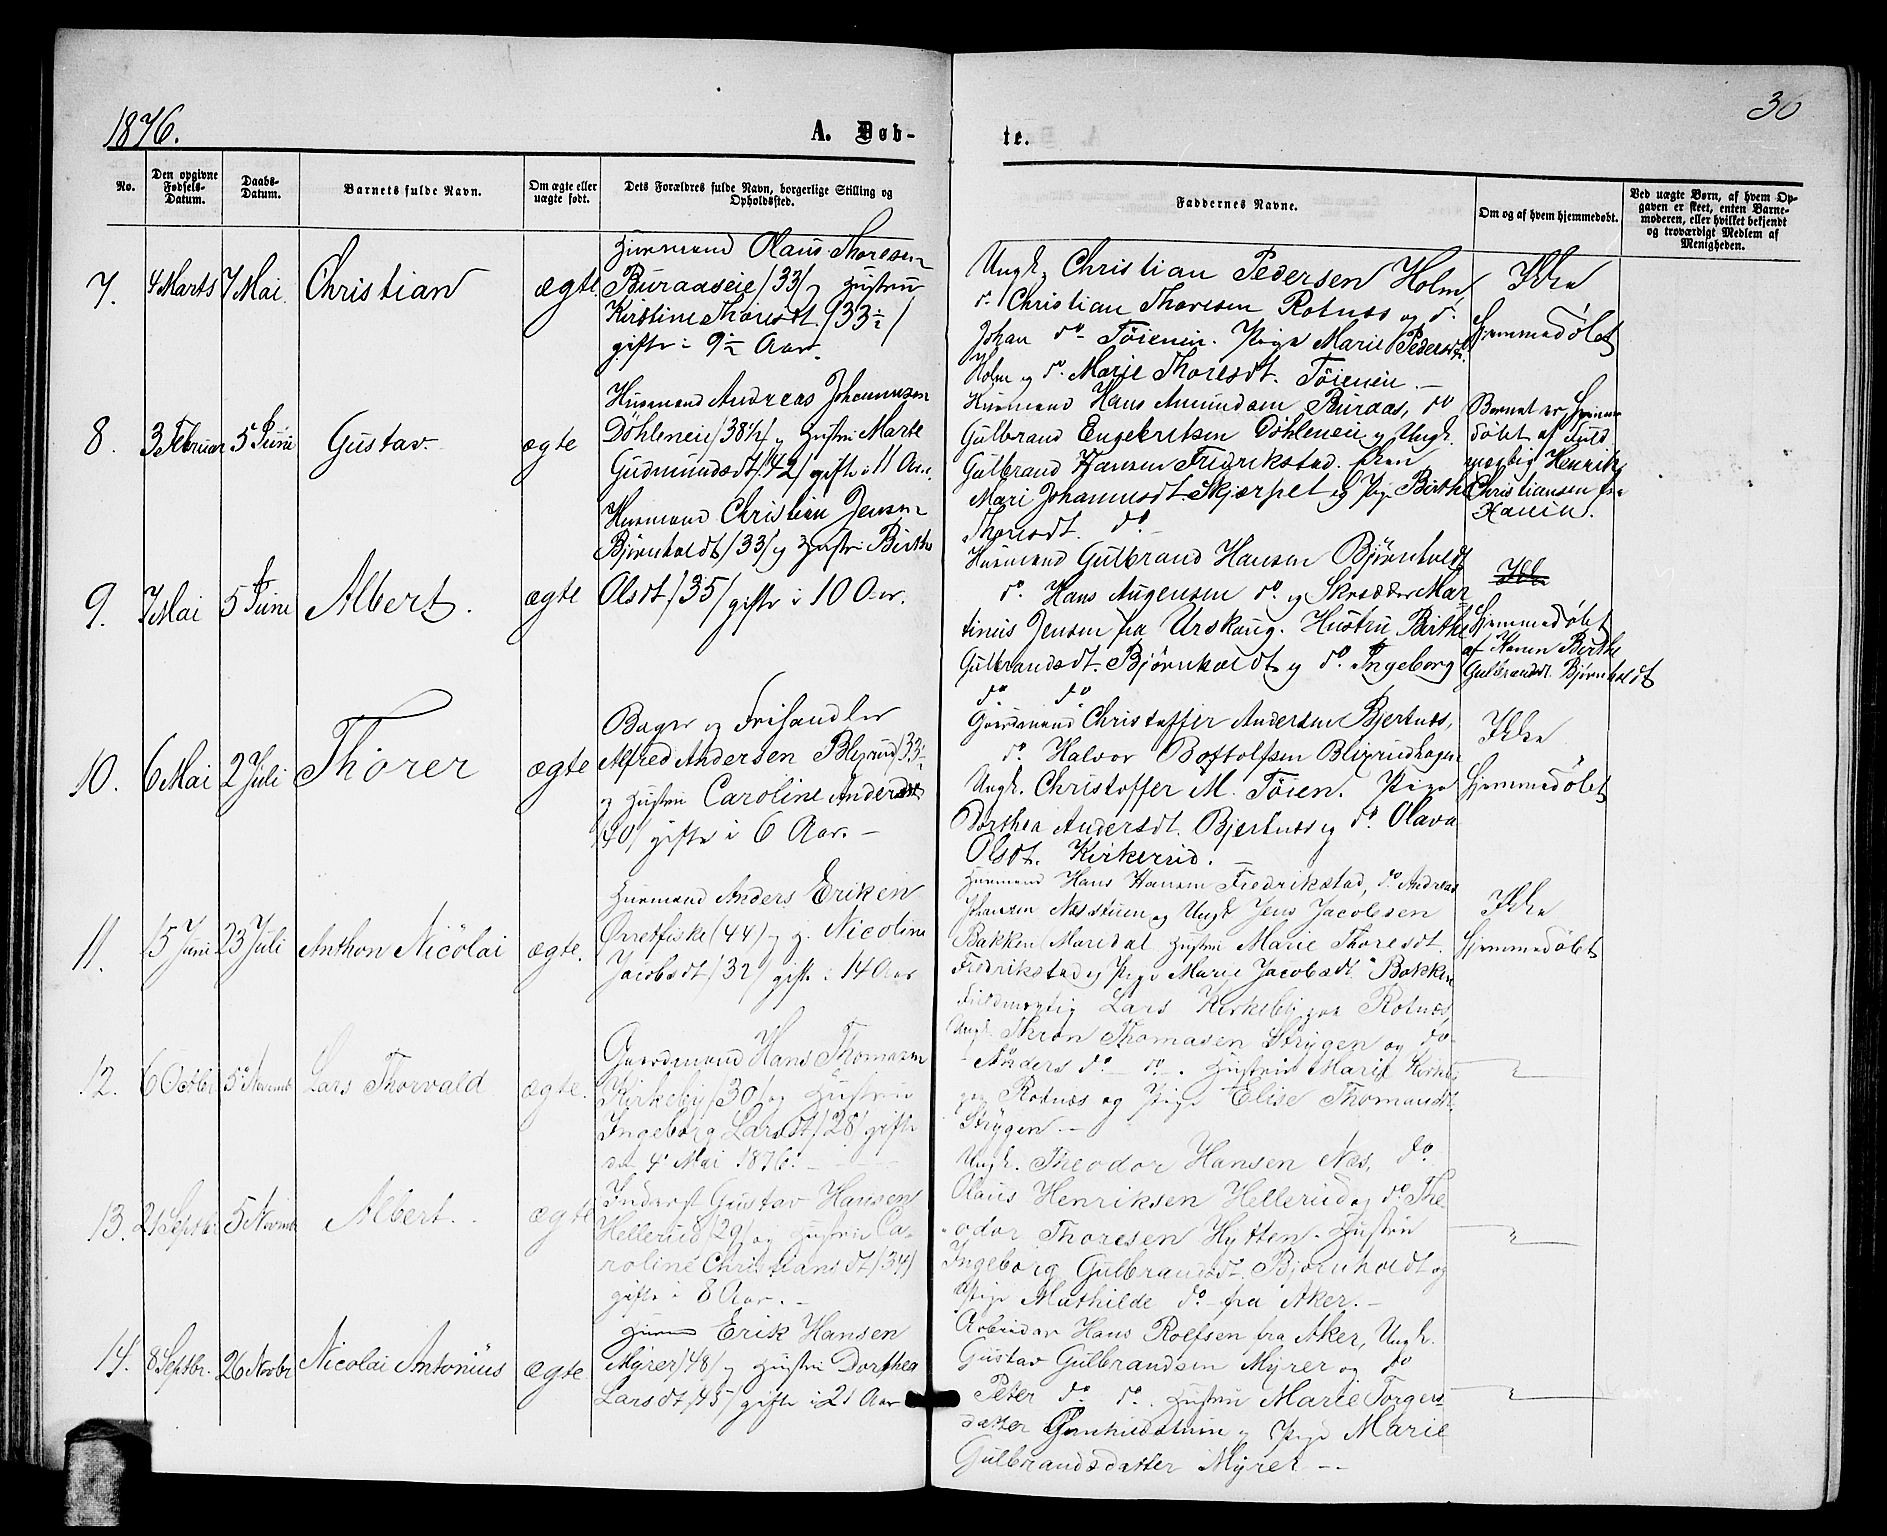 1876.
A. Døb-
te.
30
No.
Den opgivne Fødsels-Datum.
Daabs-Datum.
Barnets fulde Navn.
Om ægte eller uægte født.
Dets Forældres fulde Navn, borgerlige Stilling og Opholdssted.
Faddernes Navne.
Om og af hvem hjemmedøbt.
Ved uægte Børn, af hvem Op-
gaven er skeet, enten Barne-
moderen, eller hvilket bekjendt
og troværdigt Medlem af
Menigheden.
7. 4 Marts 7 Mai Christian ægte.
Husmand Olaus Thoresen
Buraaseie /33/ og Hustru
Kirstine Thoresdt. /33½/
gifte i 9½ Aar.
Ungk. Christian Pedersen Holm,
do. Christian Thoresen Rotnes og d.
Johan do. Töieneie. Pige Marie Pedersdt.
Holm og do. Marie Thoresdt. Töieneie. —
Ikke
hjemmedøbt
8. 3 Februar 5 Juni Gustav. ægte
Husmand Andreas Johannesen
Döhleneie /38½/ og Hustru Marte
Gudmundsdt /42/ gifte i 11 Aar.
Husmand Hans Amundsen Buraas, do
Gulbrand Engebretsen Döhleneie og Ungk.
Gulbrand Hansen Fredrikstad.
Mari Johannesdt Skjærpet og Pige Birthe
Thoresdt. do. —
Barnet er hjemme
døbt af Fuld
mægtig Henrik
Christiansen fra
9. 7 Mai 5 Juni Albert. ægte
Husmand Christian Jensen
Bjørnholdt /33/ og Hustru Birthe
Olsdt /35/ gifte i 10 Aar.
Husmand Gulbrand Hansen Bjørnholdt
do. Hans Augensen do. og Skrædder Mar-
tinus Jensen fra Urskoug. Hustru Birthe
Gulbrandsdt. Bjørnholdt og do. Ingeborg
do do
Ikke
Hjemmedøbt
af Konen Birthe
Gulbrandsdt. Bjørnholdt
10. 6 Mai 2 Juli Thorer ægte
Bager og Frihandler
Alfred Andersen Blegrud /33½
og Hustru Caroline Andersdt
/40/ gifte i 6 Aar. —
Gaardmand Christoffer Andersen Bjertnes,
do. Halvor Bottolfsen
Ungk. Christoffer M. Töien. Pige
Dorthea Andersdt. Bjertnes og do. Olava
Olsdt. Kirkerud. —
Ikke
hjemmedøbt
11. 15 Juni 23 Juli Anthon Nicolai ægte.
Husmand Anders Eriksen
Ørretfiske (44) og H. Nicoline
Jacobsdt /32/ gifte i 14 Aar
Husmand Hans Hansen Fredrikstad, do Andreas
Johansen Næsstuen og Ungk Jens Jacobsen
Bakken Maredal Hustru Marie Thoresdt.
Fredrikstad og Pige Marie Jacobsdt. Bakken
Ikke
hjemmedøbt
12. 6 Octbr 5 Novmb Lars Thorvald ægte.
Gaardmand Hans Thomasen
Kirkeby /30/ og Hustru
Ingeborg Larsdt /28/ gifte
den 4 Mai 1876. —
Fuldmægtig Lars Kirkeby paa Rotnes,
Ungk. Thron Thomasen Strygen og do
Anders do — do. Hustru Marie Kirke
paa Rotnes og Pige Elise Thomasdt
Strygen. —
— " —
13. 21 Septbr 5 Novmb Albert. ægte
Inderst Gustav Hansen
Hellerud /29/ og Hustru Ca-
roline Christiansdt /34/
gifte i 8 Aar. —
Ungk. Theodor Hansen Næs, do
Olaus Henriksen Hellerud og do. The-
odor Thoresen Hytten. Hustru
Ingeborg Gulbrandsdt. Bjørnholdt og
Pige Mathilde do. fra Aker. —
— " —
14. 8 Septbr. 26 Novbr Nicolai Antonius ægte
Husm Erik Hansen
Myrer /48/ og Hustru Dorthea
Larsdt /45/ gifte i 21 Aar
Arbeider Hans Rolfsen fra Aker, Ungk.
Gustav Gulbrandsen Myrer og do
Peter do. do. Hustru Marie Torgers-
datter og Pige Marie
Gulbrandsdatter Myrer —
— " —